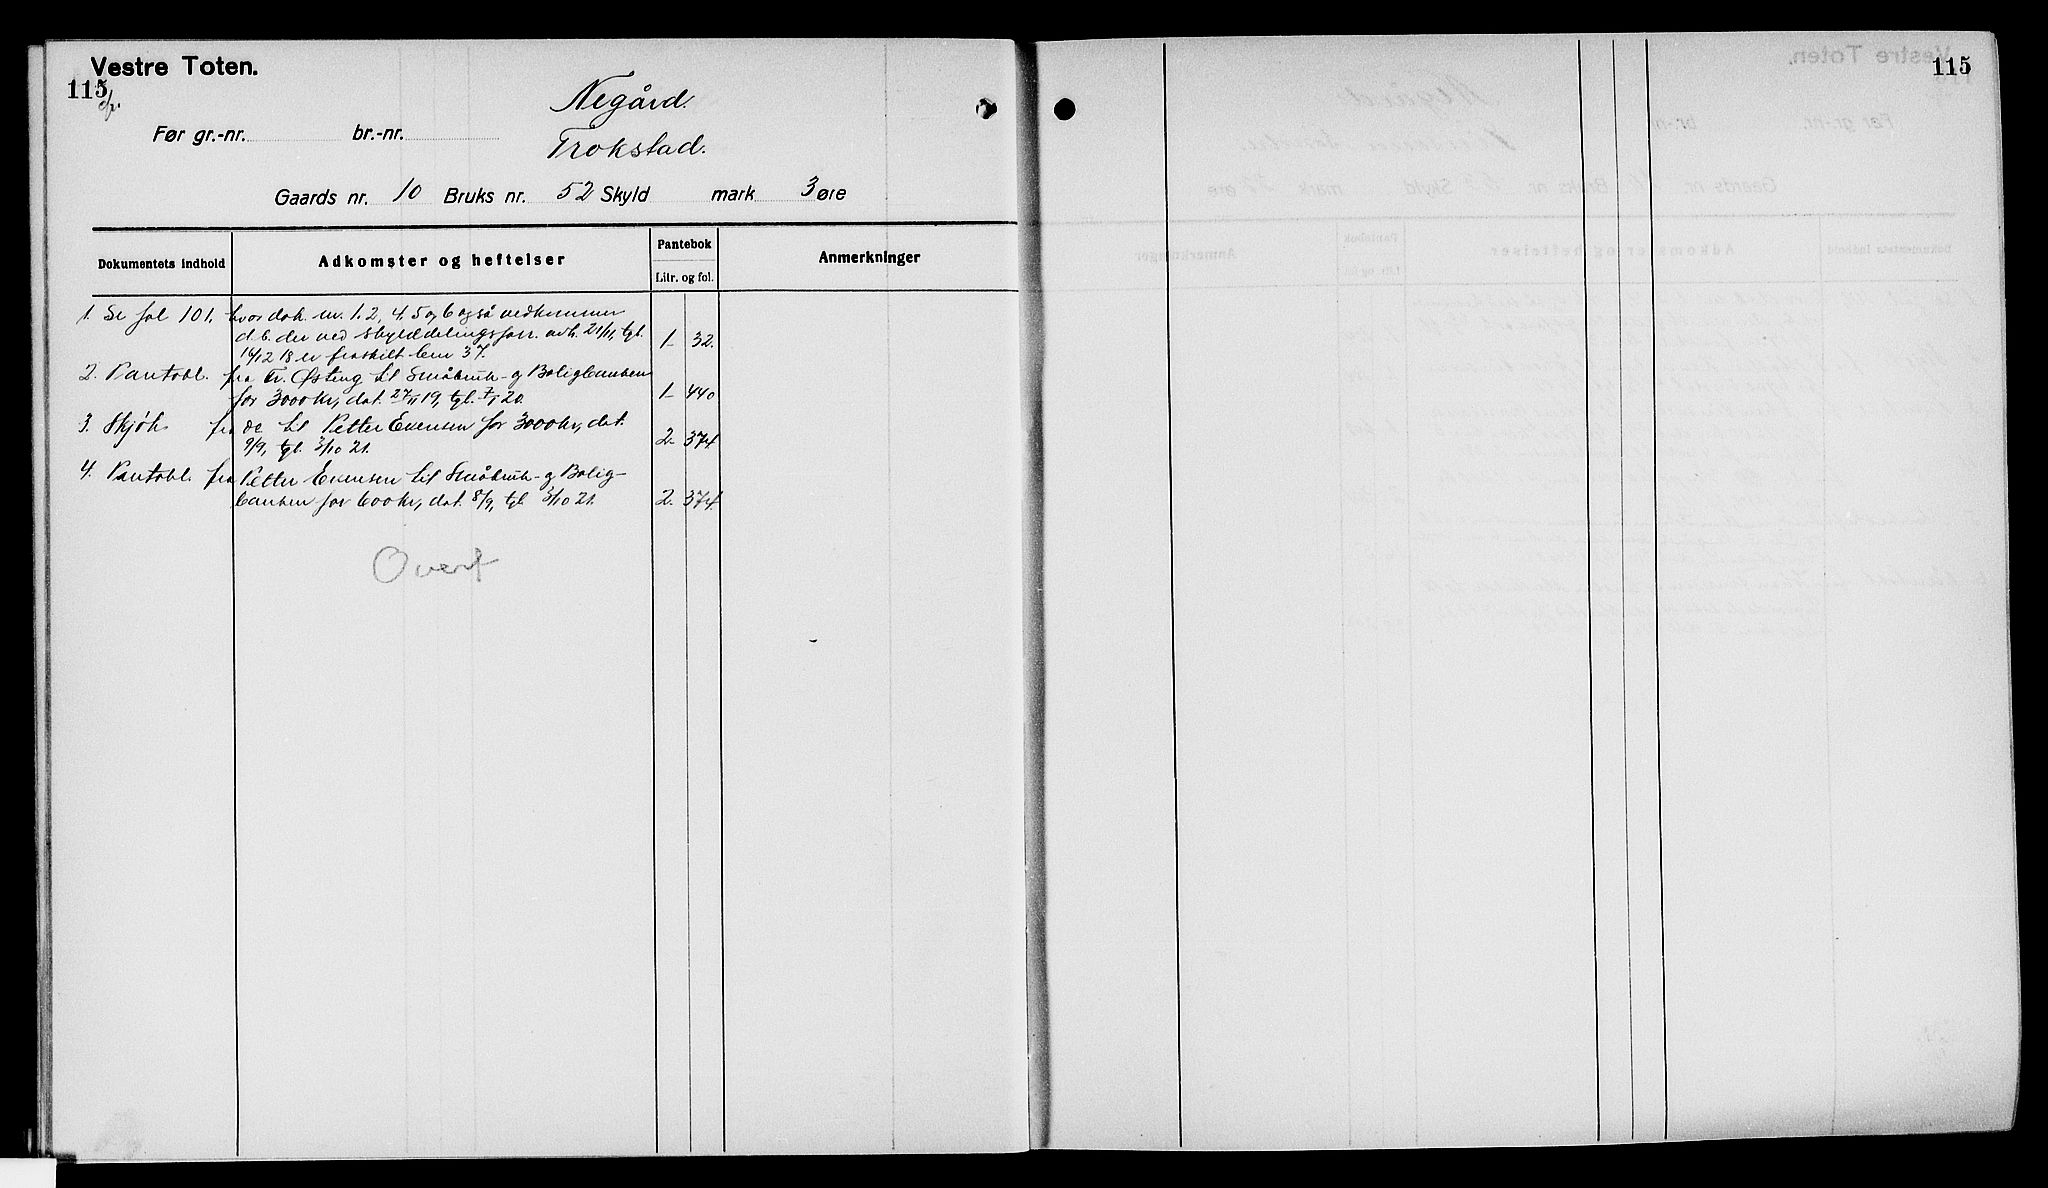 Vestre Toten.
115
Negård.
Før gr.-nr. br.-nr.
Trokstad.
Gaards nr. 10 Bruks nr. 52 Skyld mark 3 øre
Dokumentets indhold Adkomster og heftelser Pantebok Litr. og fol. Anmerkninger
1. Se fol 101, hvor dok. nr. 1. 2, 4. 5 og 6 også vedkommer
d. b. der ved skylddelingsforr. avh. 21/11, tgl.
16/12 18 er fraskilt bnr 37. 1 - 32.
2. Pantobl. fra Tr. Østeng til Småbruk- og Boligbanken
for 3000 kr, dat. 27/11 19, tgl. 20. 1 - 440
3. Skjøte fra do til Petter Evensen for 3000 kr, dat.
9/9, tgl. 3/10 21. 2 - 374.
4. Pantobl. fra Petter Evensen til Småbruk- og Bolig-
banken for 600 kr, dat. 8/9, tgl. 3/10 21. 2. 374.
Overf
115